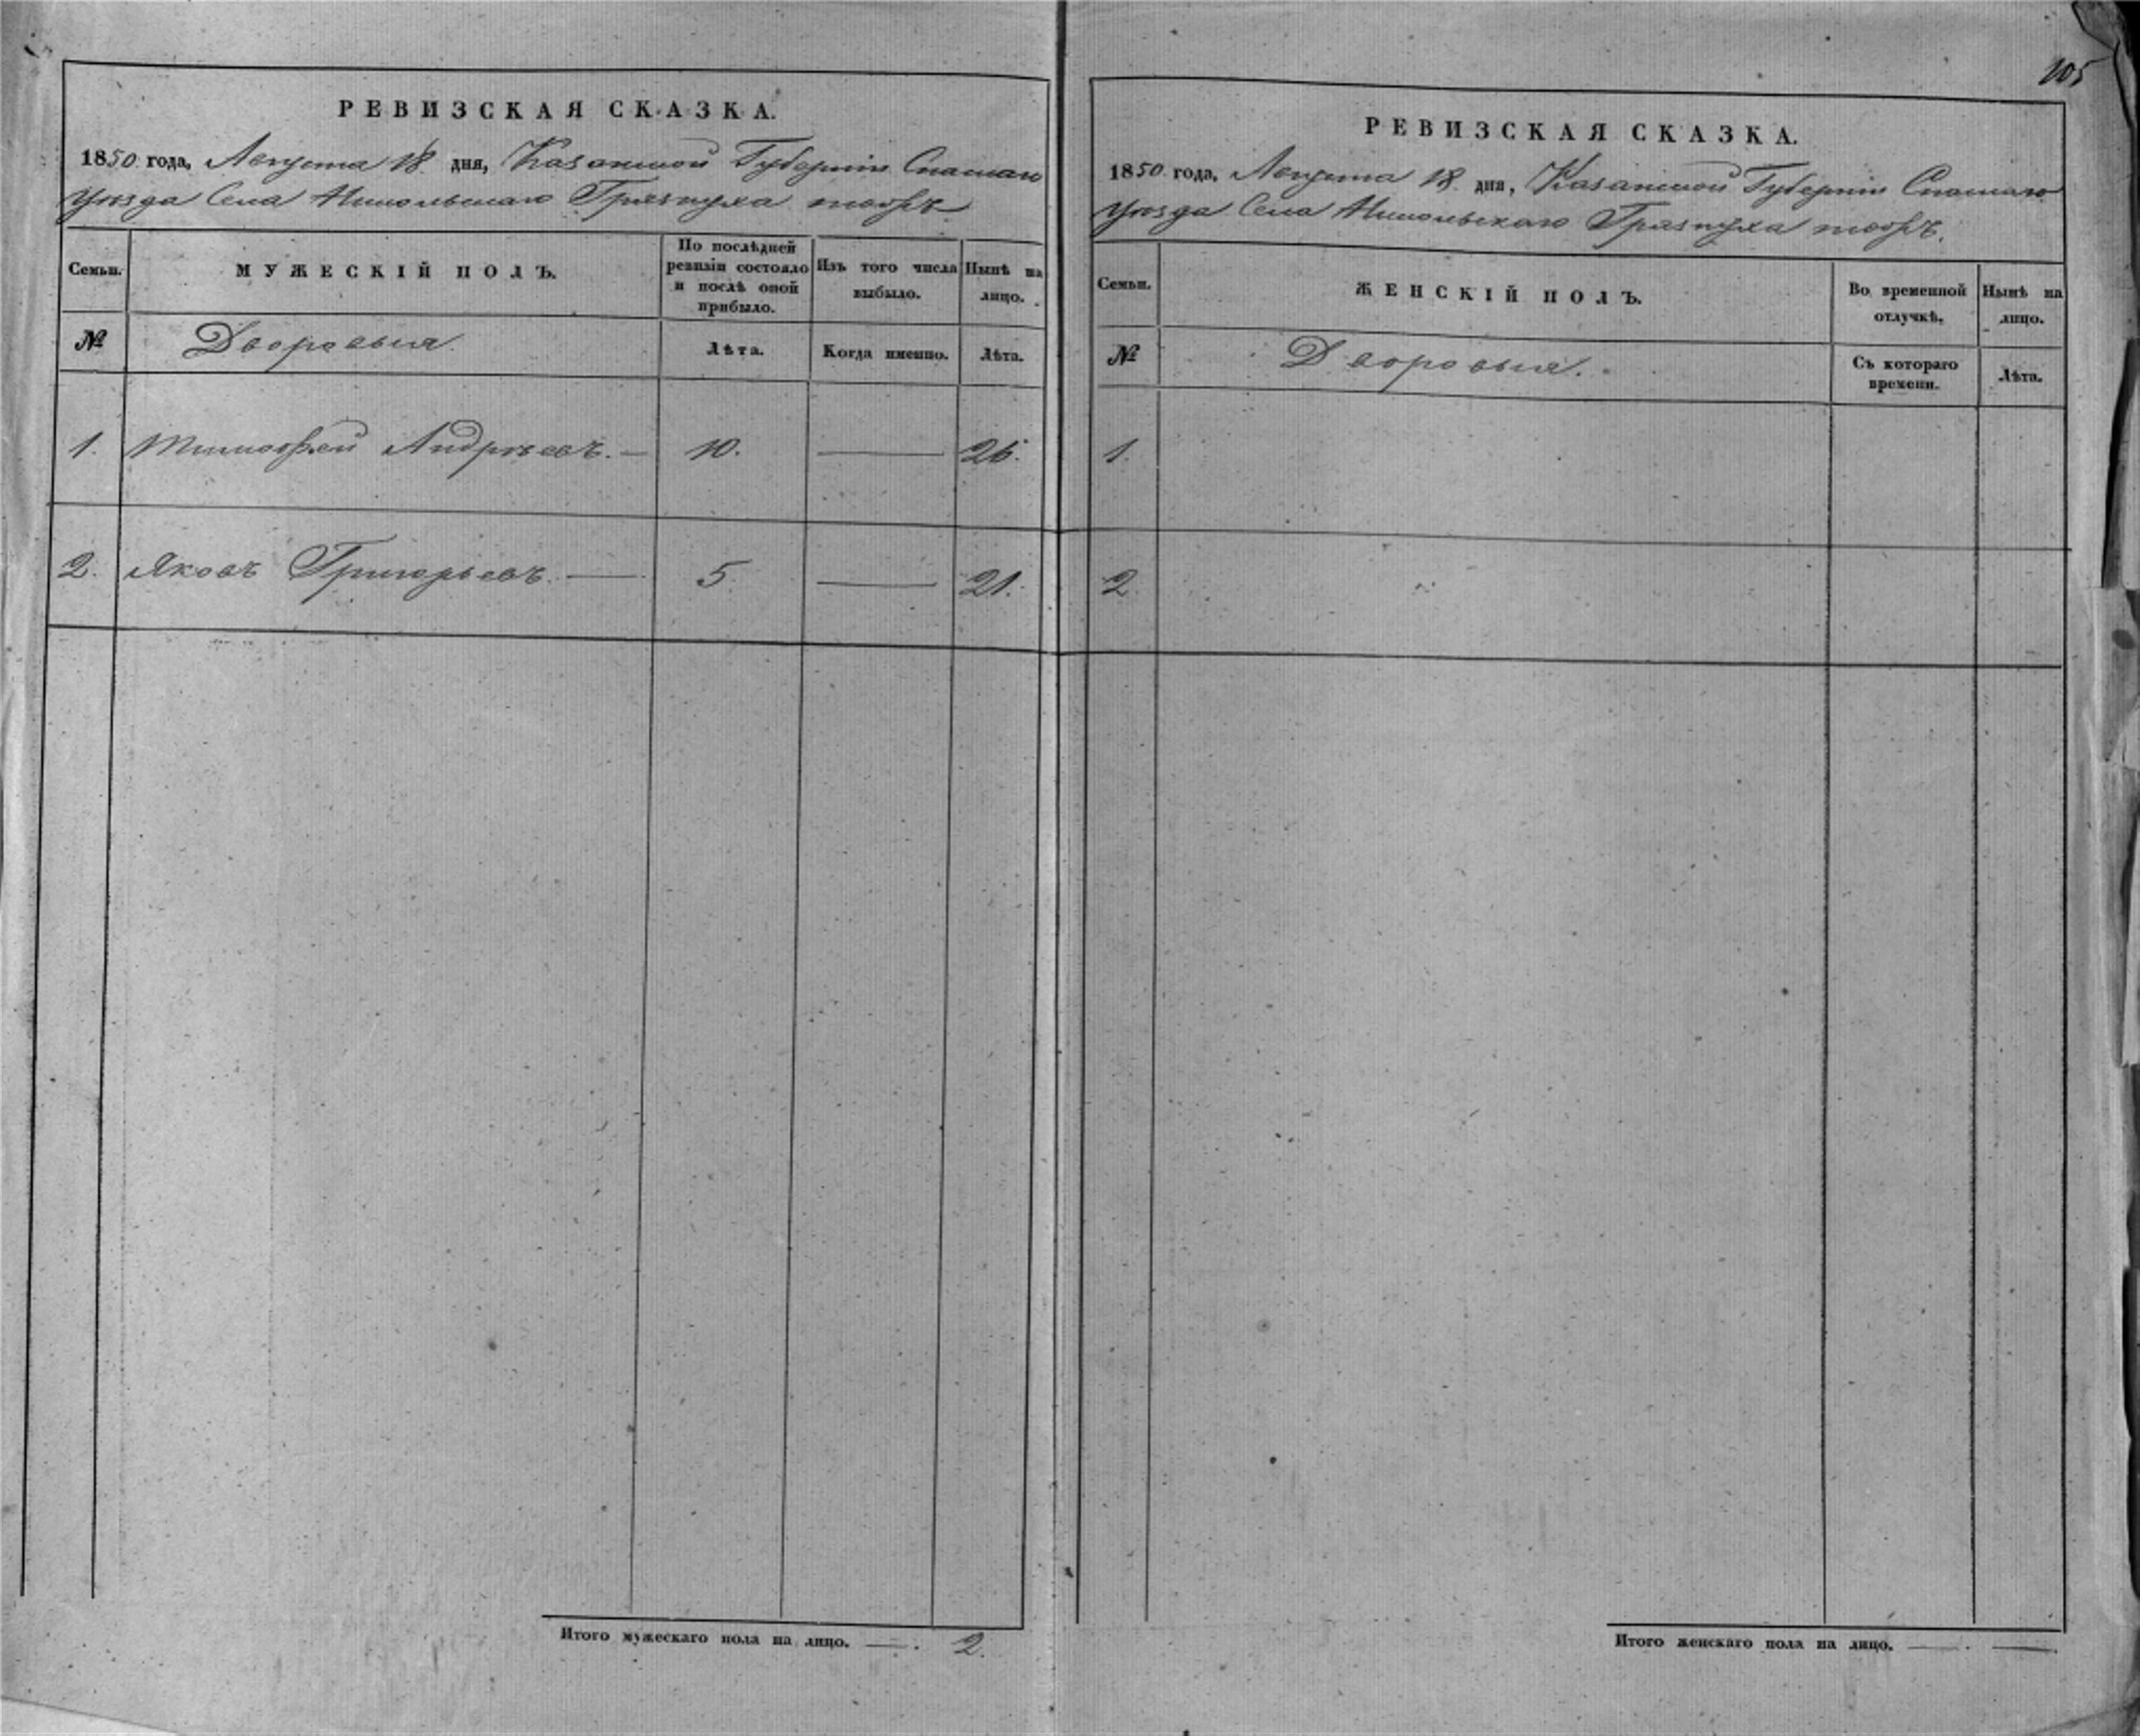 105
РЕВИЗСКАЯ СКАЗКА.
1850 года, Августа 18 дня, Казанской Губерніи Спаскаго
уѣзда Села Никольскаго Грязнуха тожъ
Семьи. МУЖЕСКІЙ ПОЛЪ. По послѣдней ревизіи состояло и послѣ оной прибыло. Изъ того числа выбыло. Нынѣ на лицо.
№ Дворовыя Лѣта. Когда именно. Лѣта.
1. Тимофей Андреевъ. — 10. — 26.
2. Яковъ Григорьевъ. — 5 — 21.
Итого мужескаго пола на лицо. — 2.
РЕВИЗСКАЯ СКАЗКА.
1850 года, Августа 18 дня, Казанской Губерніи Спаскаго
уѣзда Села Никольскаго Грязнуха тожъ.
Семьи. ЖЕНСКІЙ ПОЛЪ. Во временной отлучкѣ. Нынѣ на лицо.
№ Дворовыя. Съ котораго времени. Лѣта.
1.
2
Итого женскаго пола на лицо. — . —